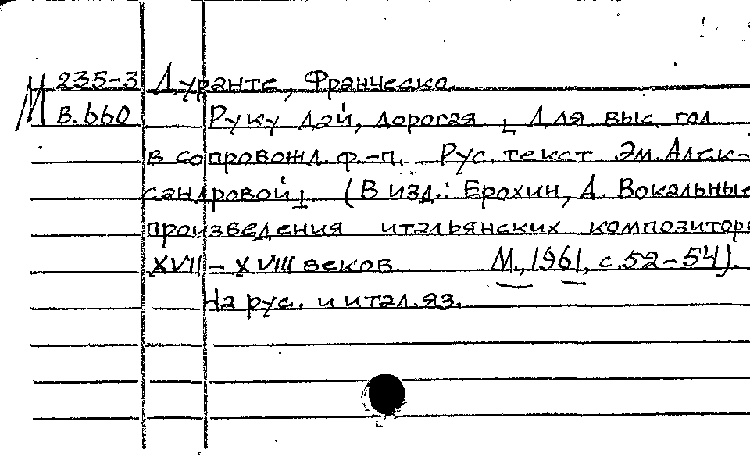 М 235-3 Дуранте, Франческо.
В.660 Руку дай, дорогая [Для выс. гол.
в сопровожд. ф.-п. Рус. текст Эм. Алек-
сандровой] (В изд.: Ерохин, А. Вокальные
произведения итальянских композиторов
XVII – XVIII веков М., 1961, с. 52–54).
На рус. и итал. яз.